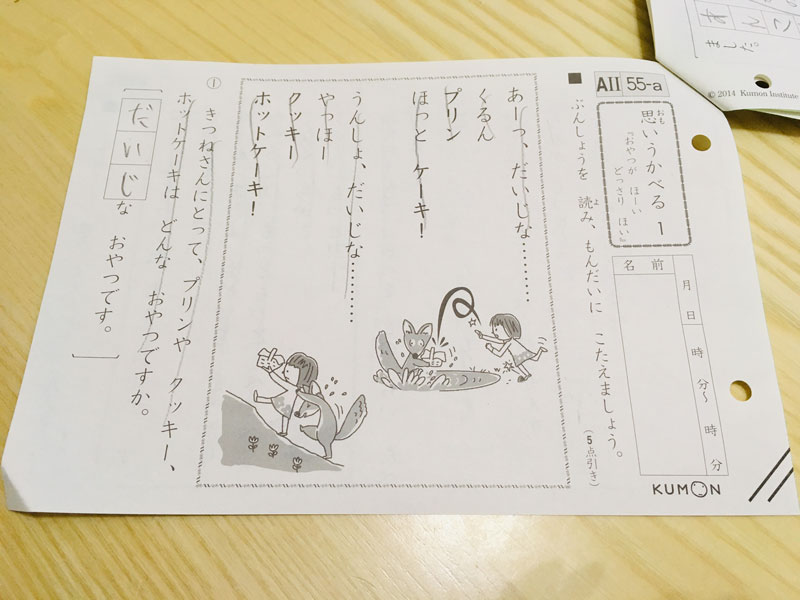 AII 55-a
思いうかべる 1
『おやつが ほーい
どっさり ほい』
名前
月 日
時 分〜 時 分
KUMON
■ ぶんしょうを 読み、もんだいに こたえましょう。
(5点引き)
あーっ、だいじな…………
くるん
プリン
ほっと ケーキ！
うんしょ、だいじな…………
やっほー
クッキー
ホットケーキ！
① きつねさんにとって、プリンや クッキー、
ホットケーキは どんな おやつですか。
だいじな おやつです。
ました。
© 2014 Kumon Institute